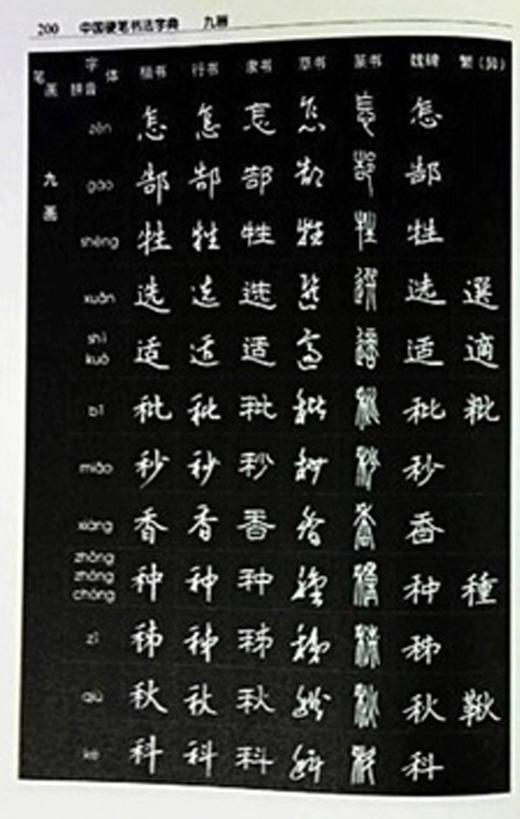 200 中国硬笔书法字典 九画
笔画 字体 拼音 楷书 行书 隶书 草书 篆书 魏碑 繁(异)
九画
zěn 怎 怎 怎 怎 怎 怎
gào 郜 郜 郜 郜 郜 郜
shēng 牲 牲 牲 牲 牲 牲
xuǎn 选 选 选 选 選 选 選
shì kuò 适 适 适 适 适 适 適
bǐ 秕 秕 秕 秕 秕 秕 粃
miǎo 秒 秒 秒 秒 秒 秒
xiāng 香 香 香 香 香 香
zhǒng zhòng chóng 种 种 种 種 種 种 種
zǐ 秭 秭 秭 秭 秭 秭
qiū 秋 秋 秋 秋 秋 秋 鞦
kē 科 科 科 科 科 科